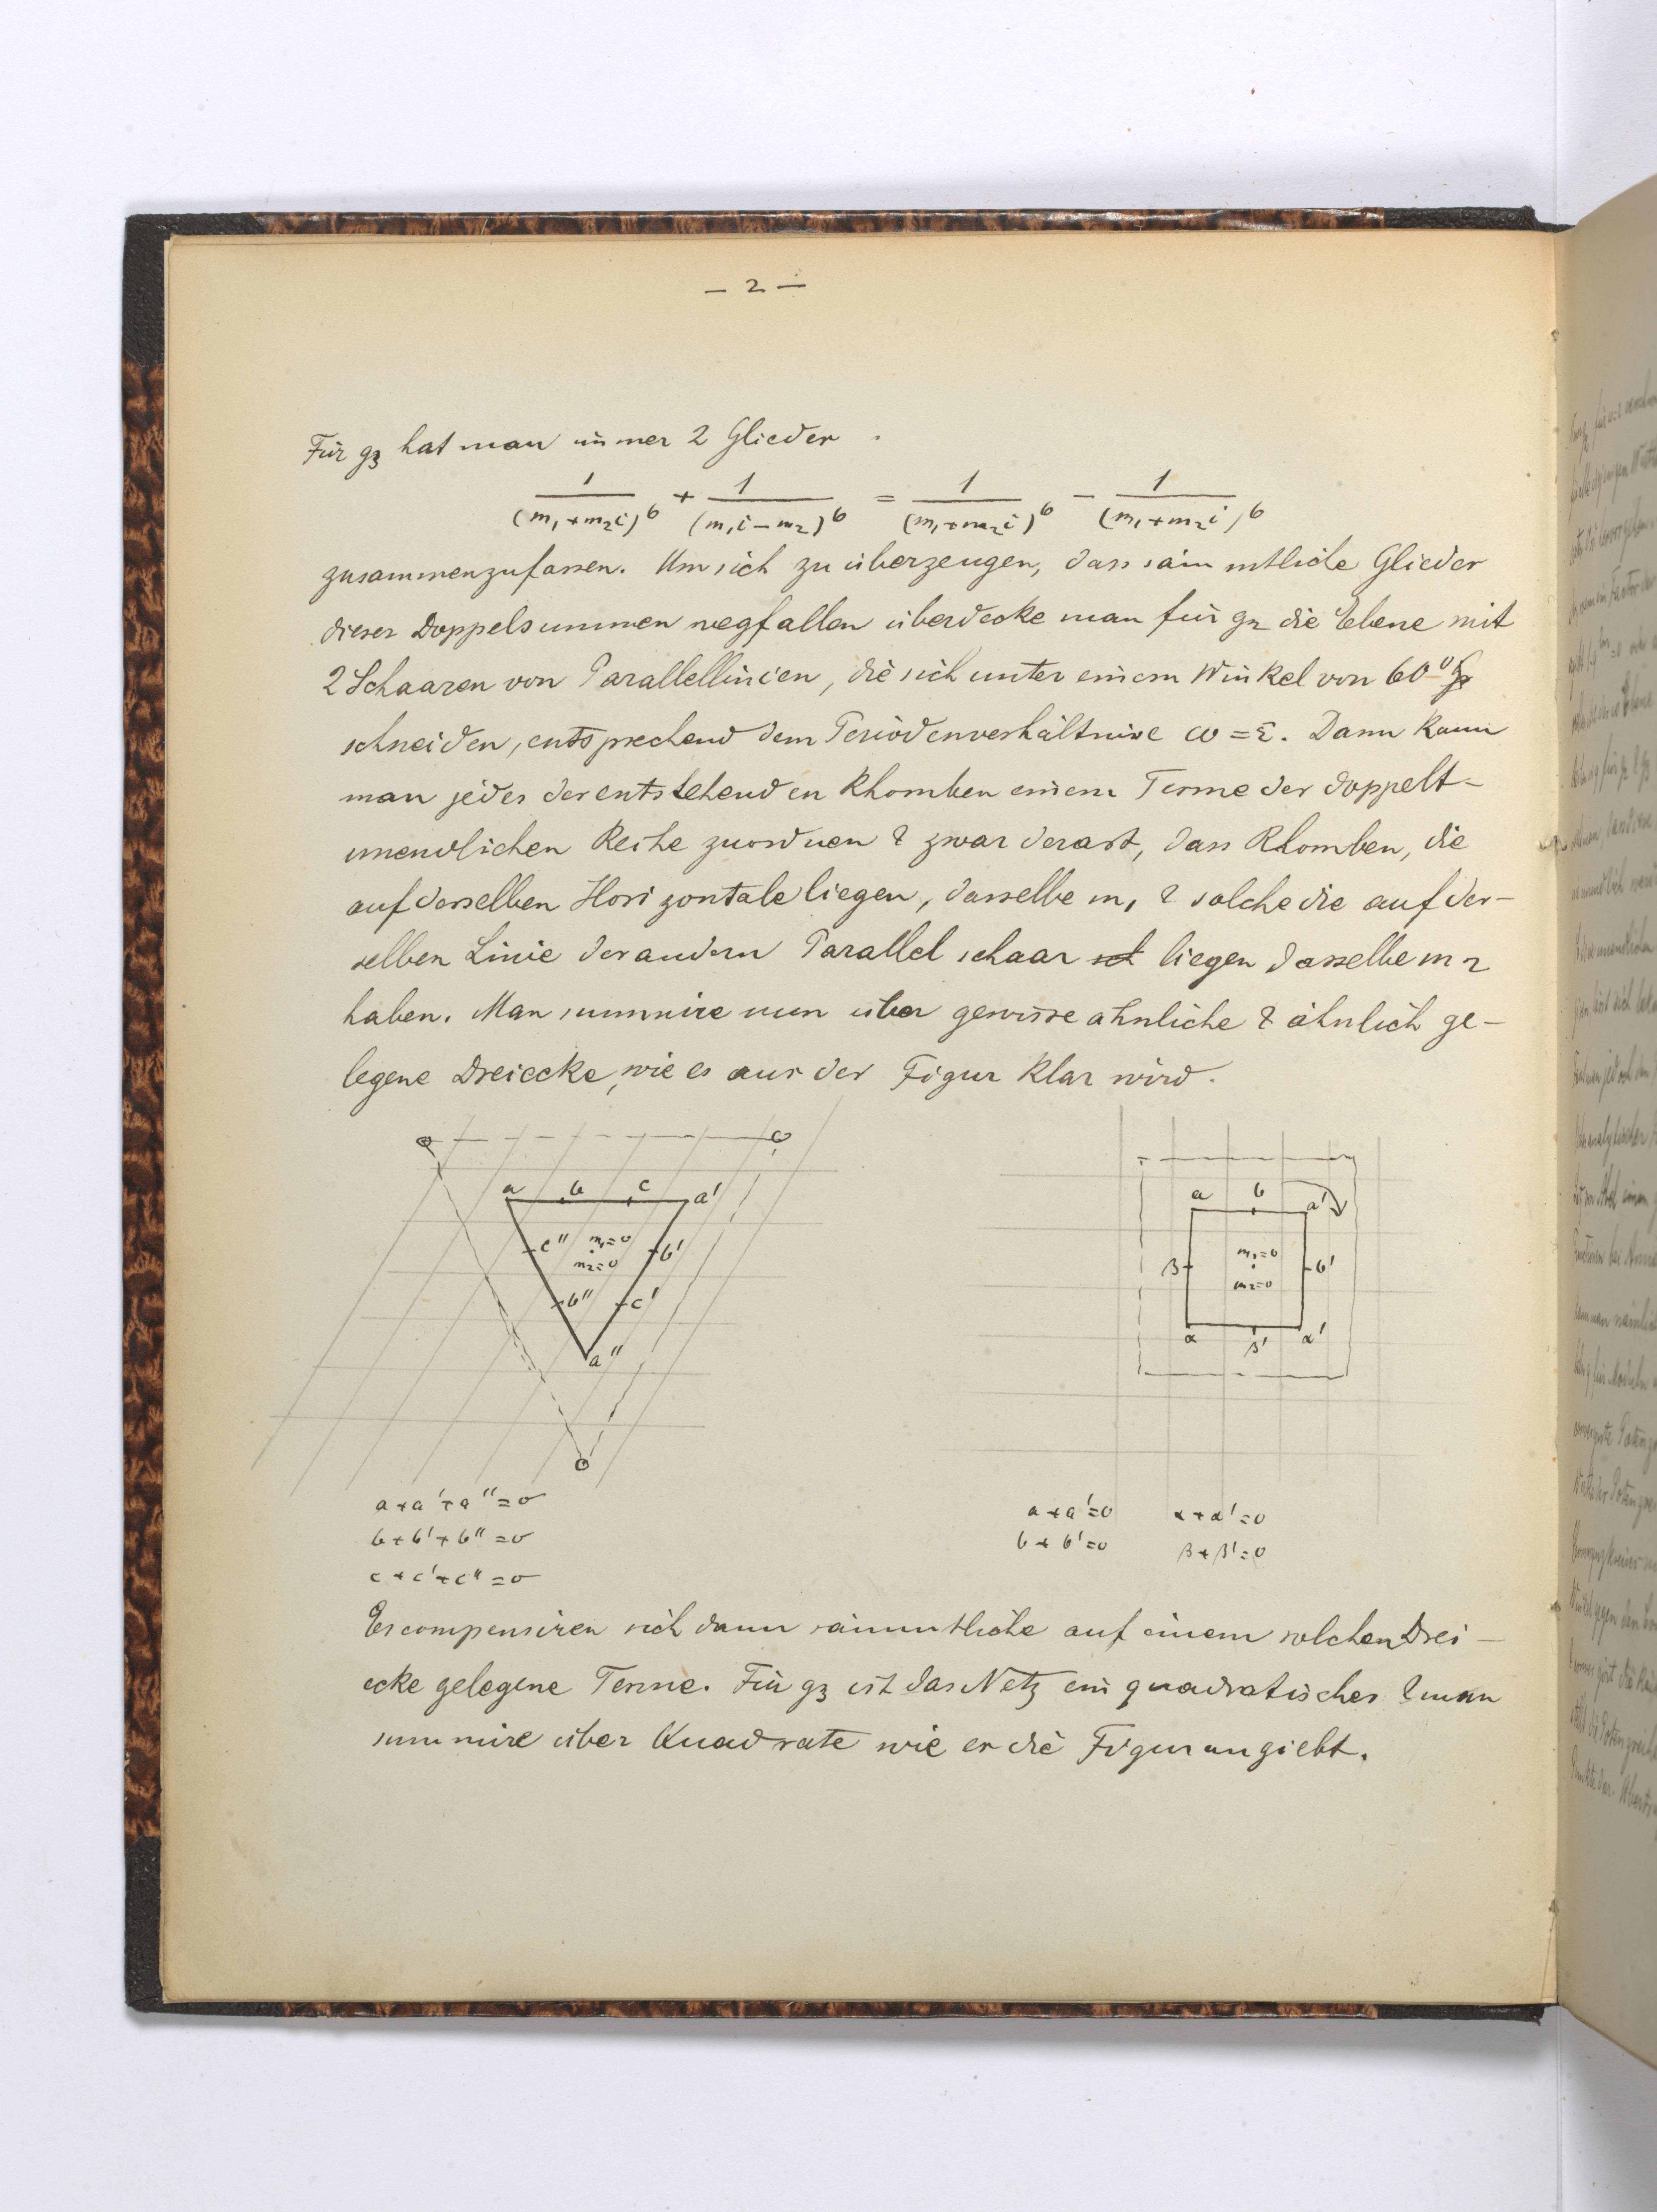 — 2 —
Für g₃ hat man immer 2 Glieder
1/(m₁+m₂i)⁶ + 1/(m₁i−m₂)⁶ = 1/(m₁+m₂i)⁶ − 1/(m₁+m₂i)⁶
zusammenzufassen. Um sich zu überzeugen, dass sämmtliche Glieder
dieser Doppelsummen wegfallen überdecke man für g₂ die Ebene mit
2 Schaaren von Parallellinien, die sich unter einem Winkel von 60⁰
schneiden, entsprechend dem Periodenverhältnise ω = ε. Dann kann
man jedes der entstehenden Rhomben einem Terme der doppelt-
unendlichen Reihe zuordnen & zwar derart, dass Rhomben, die
auf derselben Horizontale liegen, dasselbe m₁ & solche die auf der-
selben Linie der andern Parallelschaar liegen dasselbe m₂
haben. Man summire nun über gewisse ähnliche & ähnlich ge-
legene Dreiecke, wie es aus der Figur klar wird.
a b c a'
c'' m₁=0 b'
m₂=0
b'' c'
a''
a b a'
β m₁=0 b'
m₂=0
α β' α'
a+a'+a''=0
b+b'+b''=0
c+c'+c''=0
a+a'=0 α+α'=0
b+b'=0 β+β'=0
Es compensiren sich dann sämmtliche auf einem solchen Drei-
ecke gelegene Terme. Für g₃ ist das Netz ein quadratisches & man
summire über Quadrate wie es die Figur angiebt.